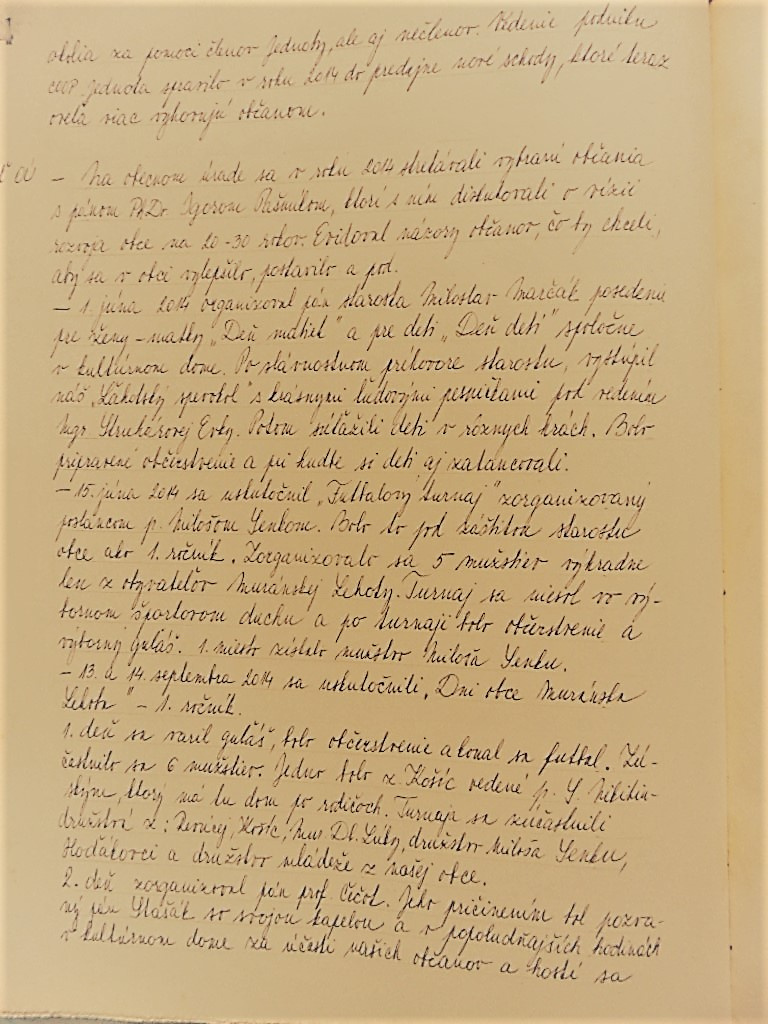 okolia za pomoci členov Jednoty, ale aj nečlenov. Vedenie podniku
COOP Jednota spravilo v roku 2014 do predajne nové schody, ktoré teraz
ovela viac vyhovujú občanom.
– Na obecnom úrade sa v roku 2014 stretávali vybraní občania
s pánom PhDr. Igorom Pašmíkom, ktorí s ním diskutovali o vízii
rozvoja obce na 20-30 rokov. Evitoval názory občanov, čo by chceli,
aby sa v obci vylepšilo, postavilo a pod.
– 1. júna 2014 organizoval pán starosta Miloslav Marčák posedenie
pre ženy – matky „Deň matiek" a pre deti „Deň detí" spoločne
v kultúrnom dome. Po slávnostnom príhovore starostu, vystúpil
náš „Lehotský spevokol" s krásnymi ľudovými pesničkami pod vedením
Mgr. Evky. Potom súťažili deti v rôznych hrách. Bolo
pripravené občerstvenie a pri hudbe si deti aj zatancovali.
– 15. júna 2014 sa uskutočnil „Futbalový turnaj" zorganizovaný
poslancom p. Milošom Senkom. Bolo to pod záštitou starostu
obce ako 1. ročník. Zorganizovalo sa 5 mužstiev výhradne
len z obyvateľov Muránskej Lehoty. Turnaj sa niesol vo vý-
bornom športovom duchu a po turnaji bolo občerstvenie a
výborný guláš. 1. miesto získalo mužstvo Miloša Senku.
– 13. a 14. septembra 2014 sa uskutočnili „Dni obce Muránska
Lehota" – 1. ročník.
1. deň sa varil guláš, bolo občerstvenie a konal sa futbal. Zú-
častnilo sa 6 mužstiev. Jedno bolo z Košíc vedené p. S. Nikitin-
ským, ktorý má tu dom po rodičoch. Turnaja sa zúčastnili
družstvá z: Revúcej, Košíc, Mur. Dl. Lúky, družstvo Miloša Senku,
Hoďákovci a družstvo mládeže z našej obce.
2. deň zorganizoval pán prof. Čičot. Jeho pričinením bol pozva-
ný pán Stašák so svojou kapelou a v popoludňajších hodinách
v kultúrnom dome za účasti našich občanov a hostí sa